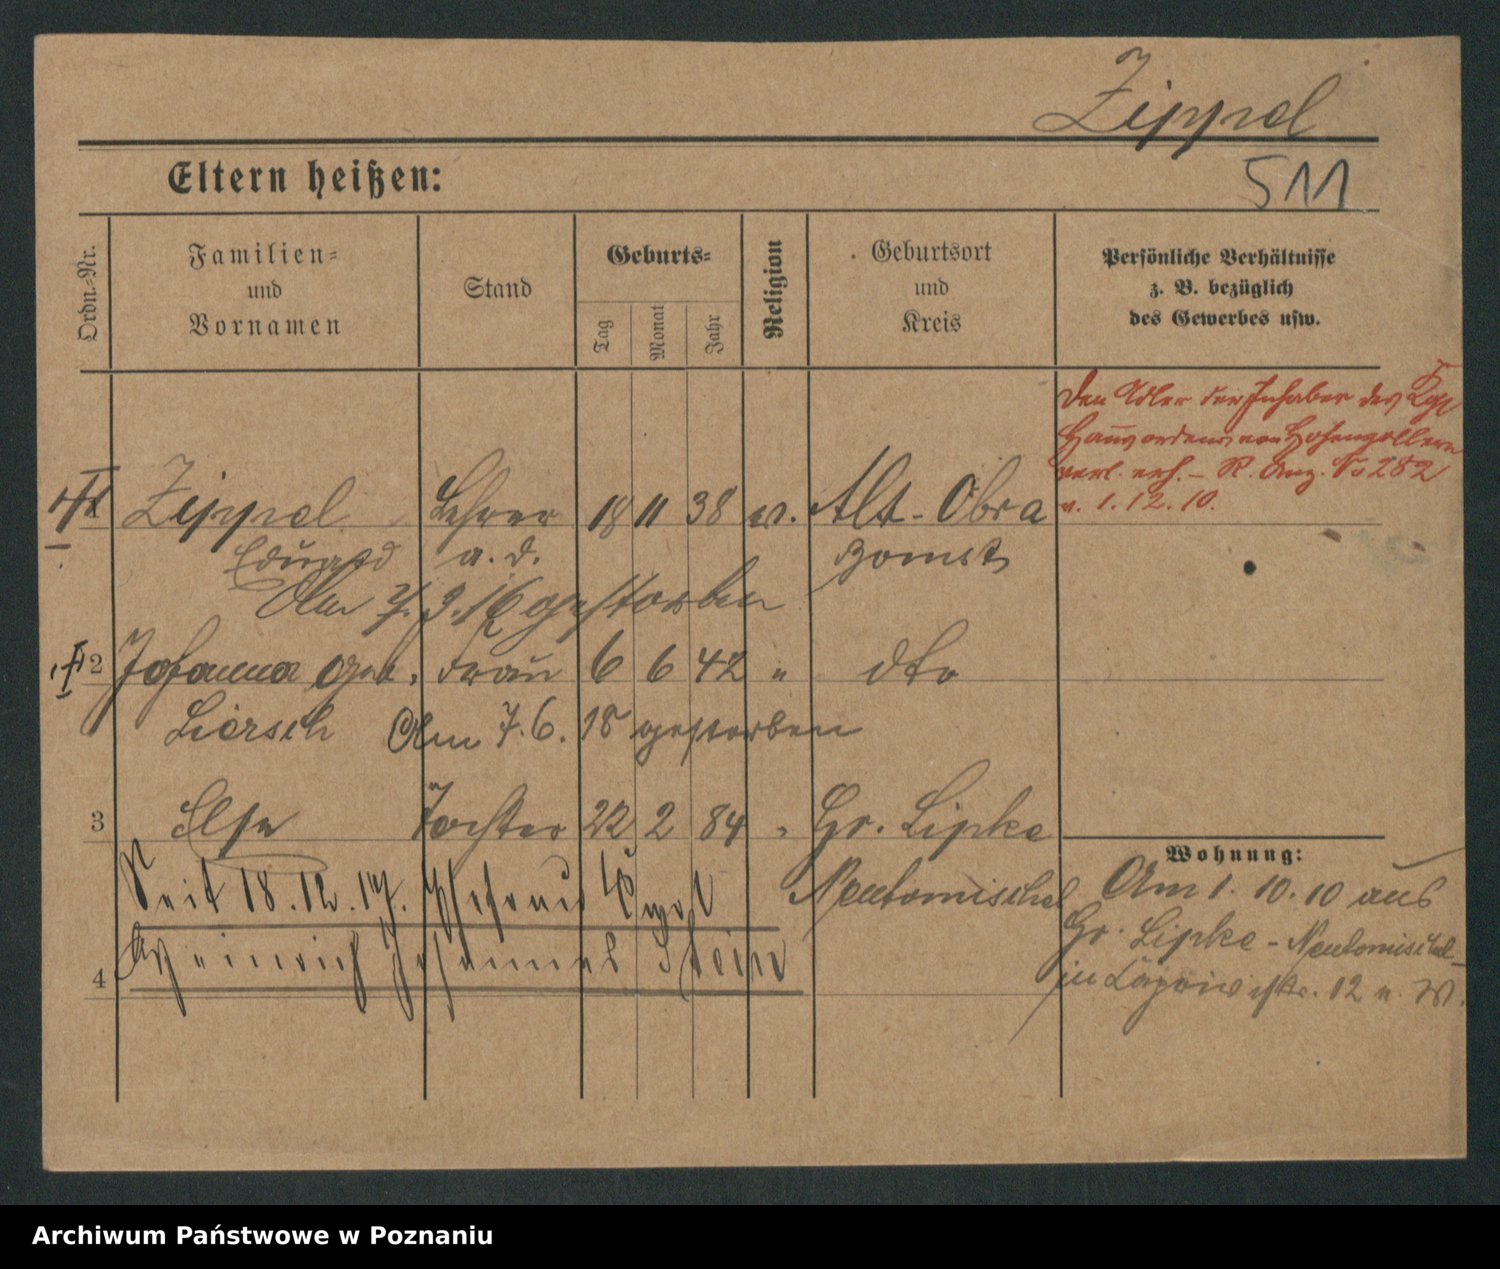 Zippel
511
Eltern heißen:
Ordn.-Nr.
Familien-
und
Vornamen
Stand
Geburts-
Tag
Monat
Jahr
Religion
Geburtsort
und
Kreis
Persönliche Verhältnisse
z. B. bezüglich
des Gewerbes usw.
Den Adler der Inhaber des Kgl
Hausordens von Hohenzollern
verl. erh. – R. Anz. No 282
v. 1.12.10.
1 Zippel Lehrer 18 11 38 ev. Alt-Obra
Eduard a. D. Bomst
Am 7. 9. 16 gestorben
2 Johanna geb. Frau 6 6 42 " dto
Liersch Am 7. 6. 18 gestorben
3 Else Tochter 22 2 84 " Gr. Lipke
Neutomischel
Seit 18.12.17.
Heinrich Johannes Stein
4
Wohnung:
Am 1. 10. 10 aus
Gr. Lipke - Neutomischel
in 12
Archiwum Państwowe w Poznaniu